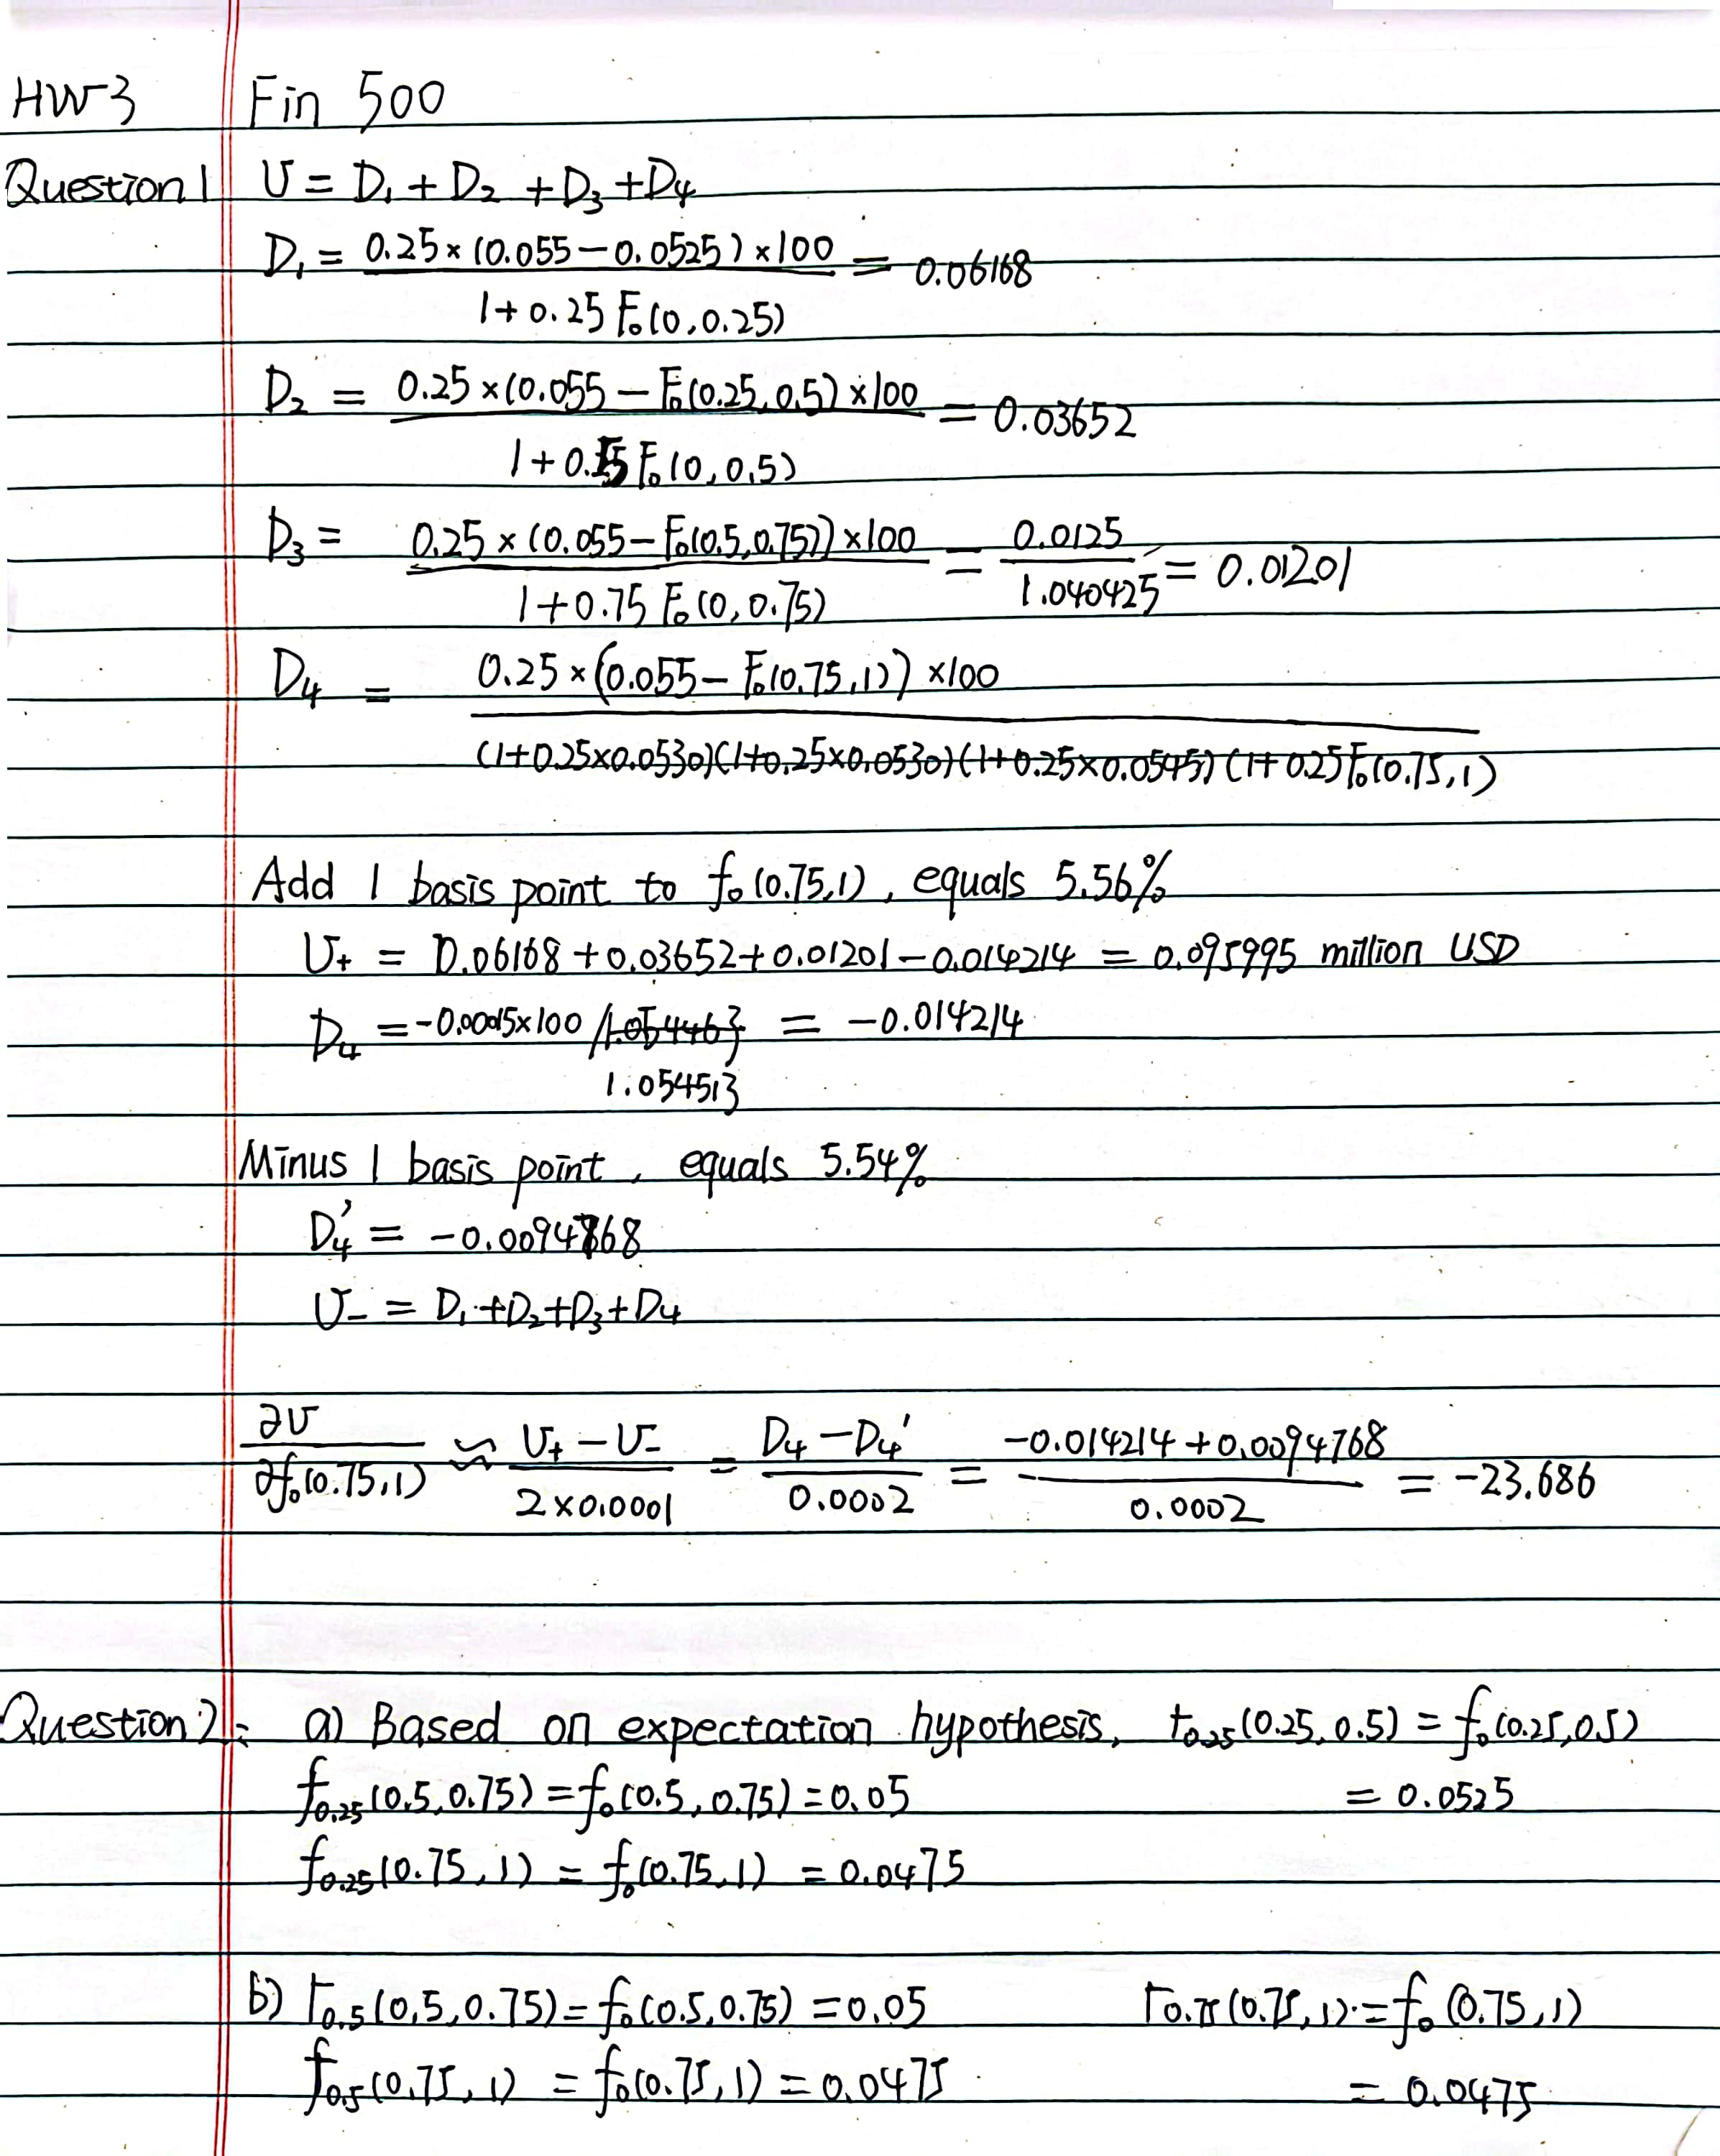 HW3 Fin 500
Question 1 U = D₁ + D₂ + D₃ + D₄
D₁ = 0.25×(0.055−0.0525)×100 / 1+0.25 F₀(0,0.25) = 0.06168
D₂ = 0.25×(0.055 − F₀(0.25,0.5)×100 / 1+0.5 F₀(0,0.5) = 0.03652
D₃ = 0.25×(0.055−F₀(0.5,0.75))×100 / 1+0.75 F₀(0,0.75) = 0.0125 / 1.040425 = 0.01201
D₄ = 0.25×(0.055−F₀(0.75,1))×100 / (1+0.25×0.0530)(1+0.25×0.0530)(1+0.25×0.0545)(1+0.25F₀(0.75,1)
Add 1 basis point to f₀(0.75,1), equals 5.56%
U₊ = 0.06168+0.03652+0.01201−0.014214 = 0.095995 million USD
D₄ = −0.00015×100 / 1.054463 = −0.014214
1.054513
Minus 1 basis point, equals 5.54%
D₄' = −0.0094768
U₋ = D₁+D₂+D₃+D₄
∂U / ∂f₀(0.75,1) ≈ U₊ − U₋ / 2×0.0001 = D₄ − D₄' / 0.0002 = −0.014214+0.0094768 / 0.0002 = −23.686
Question 2: a) Based on expectation hypothesis, r₀.₂₅(0.25,0.5) = f₀(0.25,0.5)
f₀.₂₅(0.5,0.75) = f₀(0.5,0.75) = 0.05 = 0.0525
f₀.₂₅(0.75,1) = f₀(0.75,1) = 0.0475
b) r₀.₅(0.5,0.75) = f₀(0.5,0.75) = 0.05 r₀.₇₅(0.75,1) = f₀(0.75,1)
f₀.₅(0.75,1) = f₀(0.75,1) = 0.0475 = 0.0475